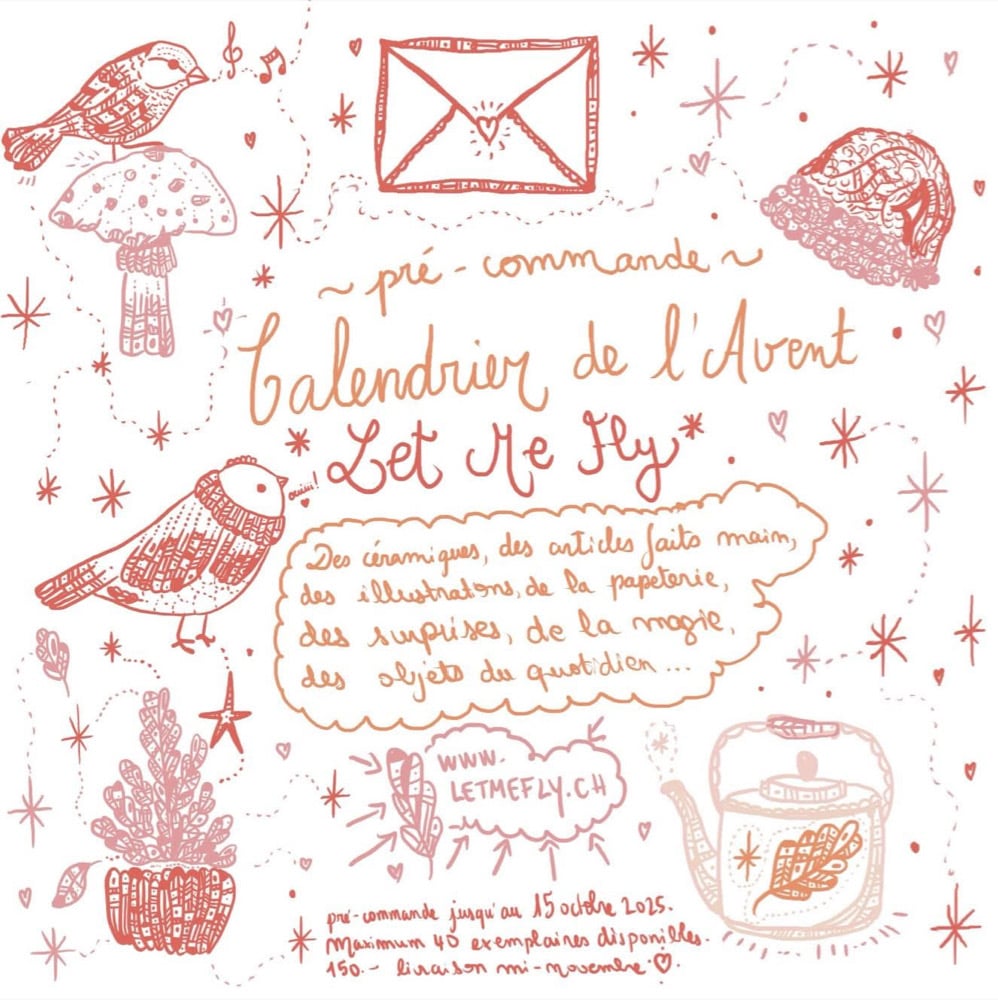 ~ pré-commande ~
Calendrier de l'Avent
* Let Me Fly *
ouiii!
Des céramiques, des articles faits main,
des illustrations, de la papeterie,
des surprises, de la magie,
des objets du quotidien...
WWW.
LETMEFLY.CH
pré-commande jusqu'au 15 octobre 2025.
Maximum 40 exemplaires disponibles.
150.- livraison mi-novembre ♡.